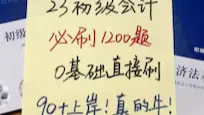 23初级会计
必刷1200题
0基础直接刷
90+上岸!真的牛!
初级
济法基